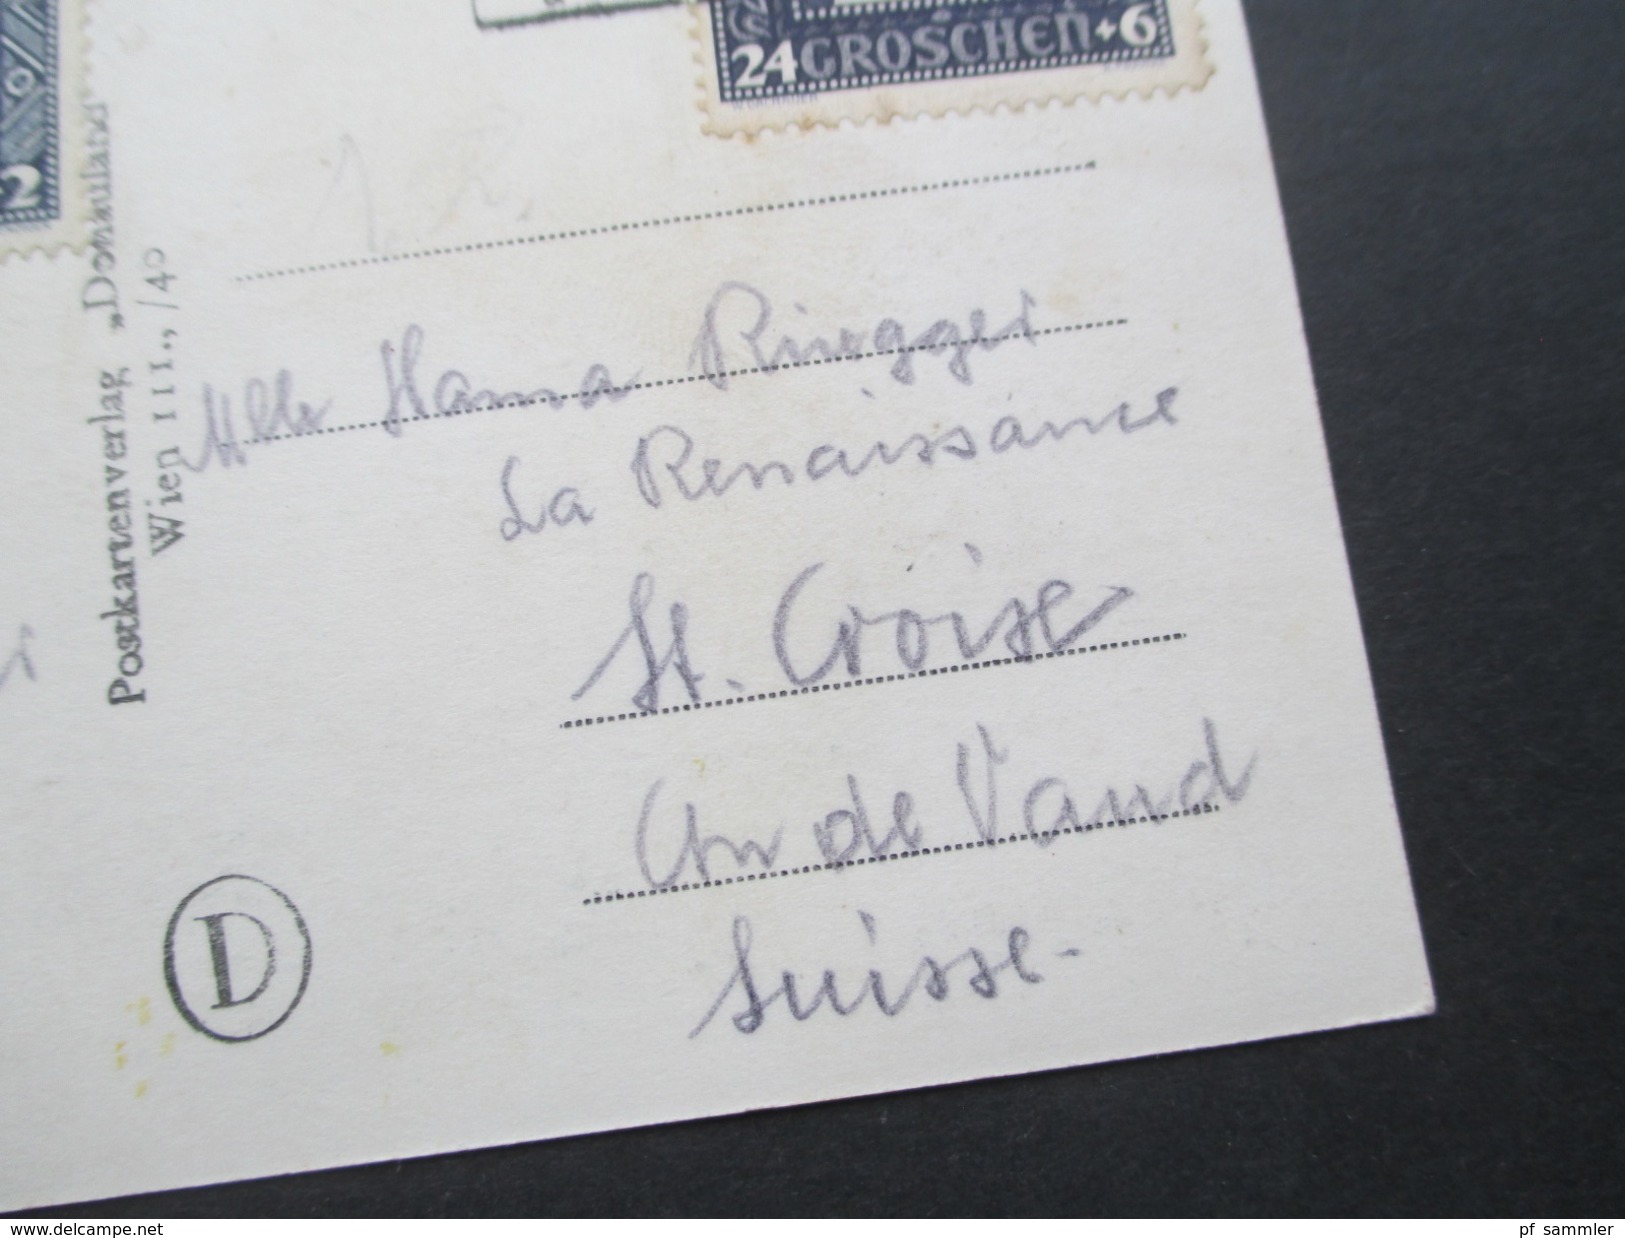 24 GROSCHEN +6
2
Postkartenverlag „Donauland"
Wien III., /40
Mlle Hanna Rüegger
La Renaissance
St. Croise
Cn de Vaud
Suisse.
D
www.delcampe.net
pf sammler